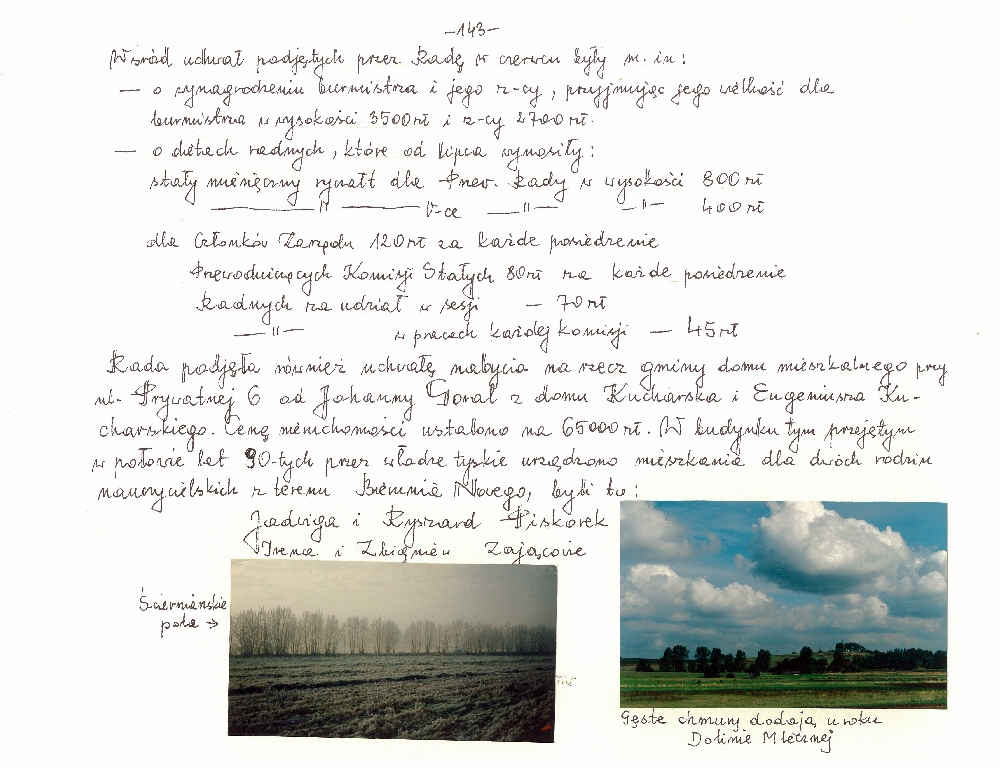 -143-
Wśród uchwał podjętych przez Radę w czerwcu były m. in:
— o wynagrodzeniu burmistrza i jego z-cy, przyjmując jego wielkość dla
burmistrza w wysokości 3500 zł i z-cy 2700 zł.
— o dietach radnych, które od lipca wynosiły:
stały miesięczny ryczałt dla Przew. Rady w wysokości 800 zł
—"— V-ce —"— —"— 400 zł
dla Członków Zarządu 120 zł za każde posiedzenie
Przewodniczących Komisji Stałych 80 zł za każde posiedzenie
Radnych za udział w sesji — 70 zł
—"— w pracach każdej komisji — 45 zł
Rada podjęła również uchwałę nabycia na rzecz gminy domu mieszkalnego przy
ul. Prywatnej 6 od Johanny Goral z domu Kucharska i Eugeniusza Ku-
charskiego. Cenę nieruchomości ustalono na 65000 zł. W budynku tym przejętym
w połowie lat 90-tych przez władze tyskie urządzono mieszkania dla dwóch rodzin
nauczycielskich z terenu Bierunia Nowego, byli to:
Jadwiga i Ryszard Piskorek
Irena i Zbigniew Zającowie
Ścierniańskie
pola →
Gęste chmury dodają uroku
Dolinie Mlecznej